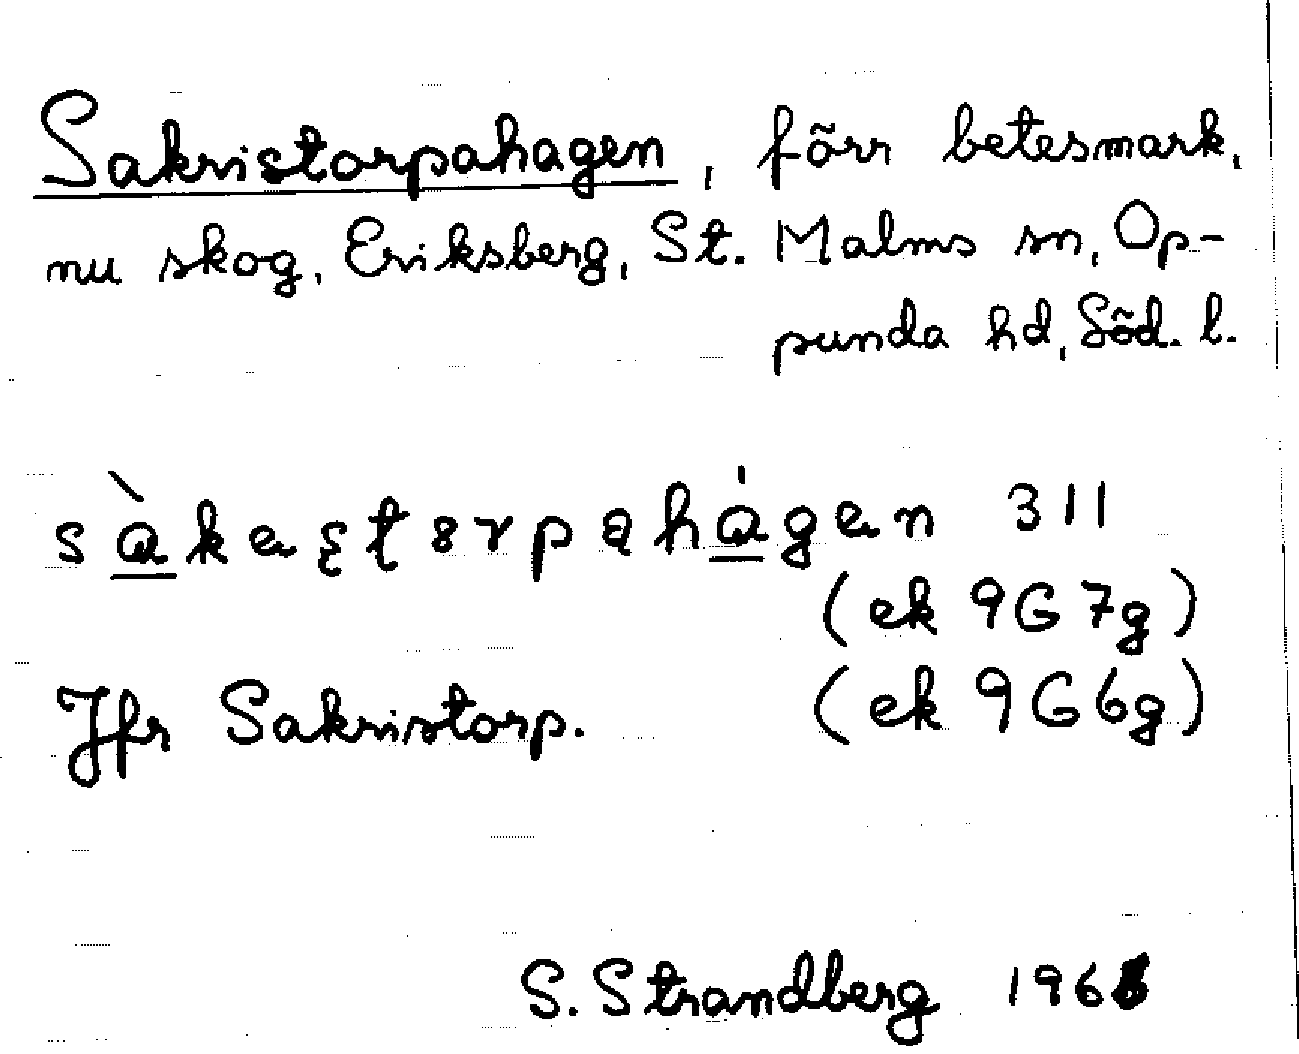 Sakristorpahagen, förr betesmark,
nu skog, Eriksberg, St. Malms sn, Op-
punda hd, Söd. l.
sàkastɵrpahágan 311
(ek 9G 7g)
Jfr Sakristorp. (ek 9G 6g)
S. Strandberg